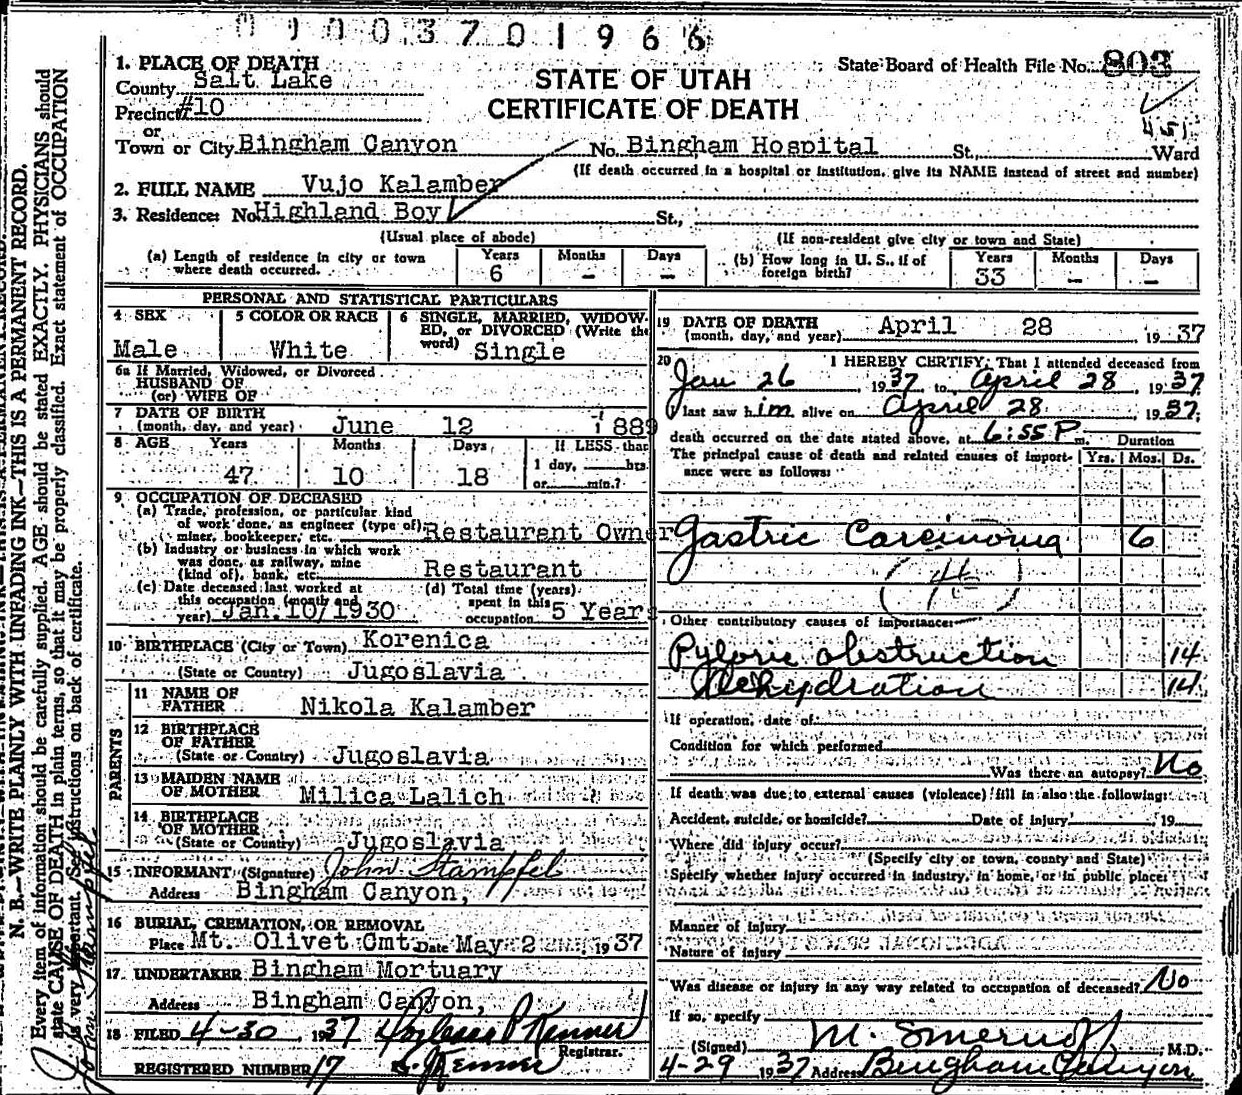 0100370196 6
1. PLACE OF DEATH
County Salt Lake
Precinct #10
or
Town or City Bingham Canyon No. Bingham Hospital St., Ward
STATE OF UTAH
CERTIFICATE OF DEATH
State Board of Health File No. 803
451
(If death occurred in a hospital or institution, give its NAME instead of street and number)
2. FULL NAME Vujo Kalamber
3. Residence: No. Highland Boy St.,
(Usual place of abode) (If non-resident give city or town and State)
(a) Length of residence in city or town where death occurred. Years 6 Months - Days -
(b) How long in U. S., if of foreign birth? Years 33 Months - Days -
PERSONAL AND STATISTICAL PARTICULARS
4 SEX Male
5 COLOR OR RACE White
6 SINGLE, MARRIED, WIDOWED, or DIVORCED (Write the word) Single
6a If Married, Widowed, or Divorced
HUSBAND OF
(or) WIFE OF
7 DATE OF BIRTH
(month, day, and year) June 12 1889
8 AGE Years 47 Months 10 Days 18
If LESS than
1 day, hrs.
or min.?
9 OCCUPATION OF DECEASED
(a) Trade, profession, or particular kind
of work done, as engineer (type of)
miner, bookkeeper, etc. Restaurant Owner
(b) Industry or business in which work
was done, as railway, mine
(kind of), bank, etc. Restaurant
(c) Date deceased last worked at
this occupation (month and
year) Jan. 10/1930
(d) Total time (years)
spent in this
occupation 5 Years
10 BIRTHPLACE (City or Town) Korenica
(State or Country) Jugoslavia
PARENTS
11 NAME OF
FATHER Nikola Kalamber
12 BIRTHPLACE
OF FATHER
(State or Country) Jugoslavia
13 MAIDEN NAME
OF MOTHER Milica Lalich
14 BIRTHPLACE
OF MOTHER
(State or Country) Jugoslavia
15 INFORMANT (Signature) John Stampfel
Address Bingham Canyon,
16 BURIAL, CREMATION, OR REMOVAL
Place Mt. Olivet Cmt. Date May 2 1937
17 UNDERTAKER Bingham Mortuary
Address Bingham Canyon,
18 FILED 4-30, 1937 P Kenner
Registrar.
REGISTERED NUMBER 17 Kenner
19 DATE OF DEATH
(month, day, and year) April 28 1937
20 I HEREBY CERTIFY, That I attended deceased from
Jan 26, 1937 to April 28, 1937
I last saw him alive on April 28, 1937,
death occurred on the date stated above, at 6:55 P m. Duration
The principal cause of death and related causes of importance were as follows: Yrs. Mos. Ds.
Gastric Carcinoma 6
(46)
Other contributory causes of importance:
Pyloric obstruction 14
Dehydration 14
If operation, date of
Condition for which performed
Was there an autopsy? No
If death was due to external causes (violence) fill in also the following:
Accident, suicide, or homicide? Date of injury 19
Where did injury occur?
(Specify city or town, county and State)
Specify whether injury occurred in industry, in home, or in public place:
Manner of injury
Nature of injury
Was disease or injury in any way related to occupation of deceased? No
If so, specify
(Signed) M. Smernoff, M.D.
4-29 1937 Address Bingham Canyon
N. B.—WRITE PLAINLY WITH UNFADING INK—THIS IS A PERMANENT RECORD.
Every item of information should be carefully supplied. AGE should be stated EXACTLY. PHYSICIANS should
state CAUSE OF DEATH in plain terms, so that it may be properly classified. Exact statement of OCCUPATION
is very important. See instructions on back of certificate.
John Stampfel